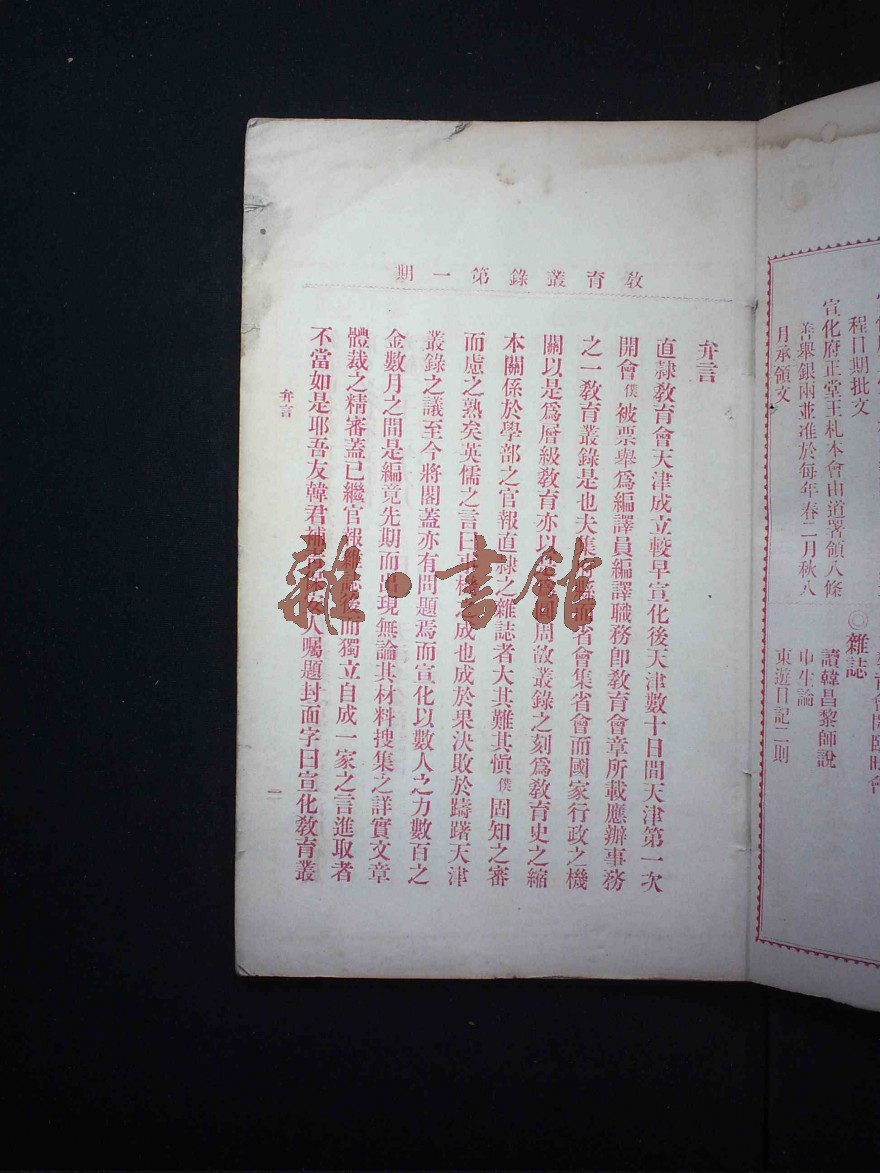 教育叢錄第一期
弁言
直隷教育會天津成立較早宣化後天津數十日間天津第一次
開會僕被票舉爲編譯員編譯職務卽教育會章所載應辦事務
之一教育叢錄是也夫集 而省會集省會而國家行政之機
關以是爲層級教育亦以 周故叢錄之刻爲教育史之縮
本關係於學部之官報直隷之雜誌者大其難其愼僕固知之審
而慮之熟矣英儒之言曰事 成也成於果決敗於躊躇天津
叢錄之議至今將閣蓋亦有問題焉而宣化以數人之力數百之
金數月之間是編竟先期而出現無論其材料搜集之詳實文章
體裁之精審蓋已繼官報 而獨立自成一家之言進取者
不當如是耶吾友韓君補 人囑題封面字曰宣化教育叢
弁言
一
雜·書館
程日期批文
宣化府正堂王札本會由道署領八條
善舉銀兩並准於每年春二月秋八
月承領文
◎雜誌
讀韓昌黎師說
申生論
東遊日記二則